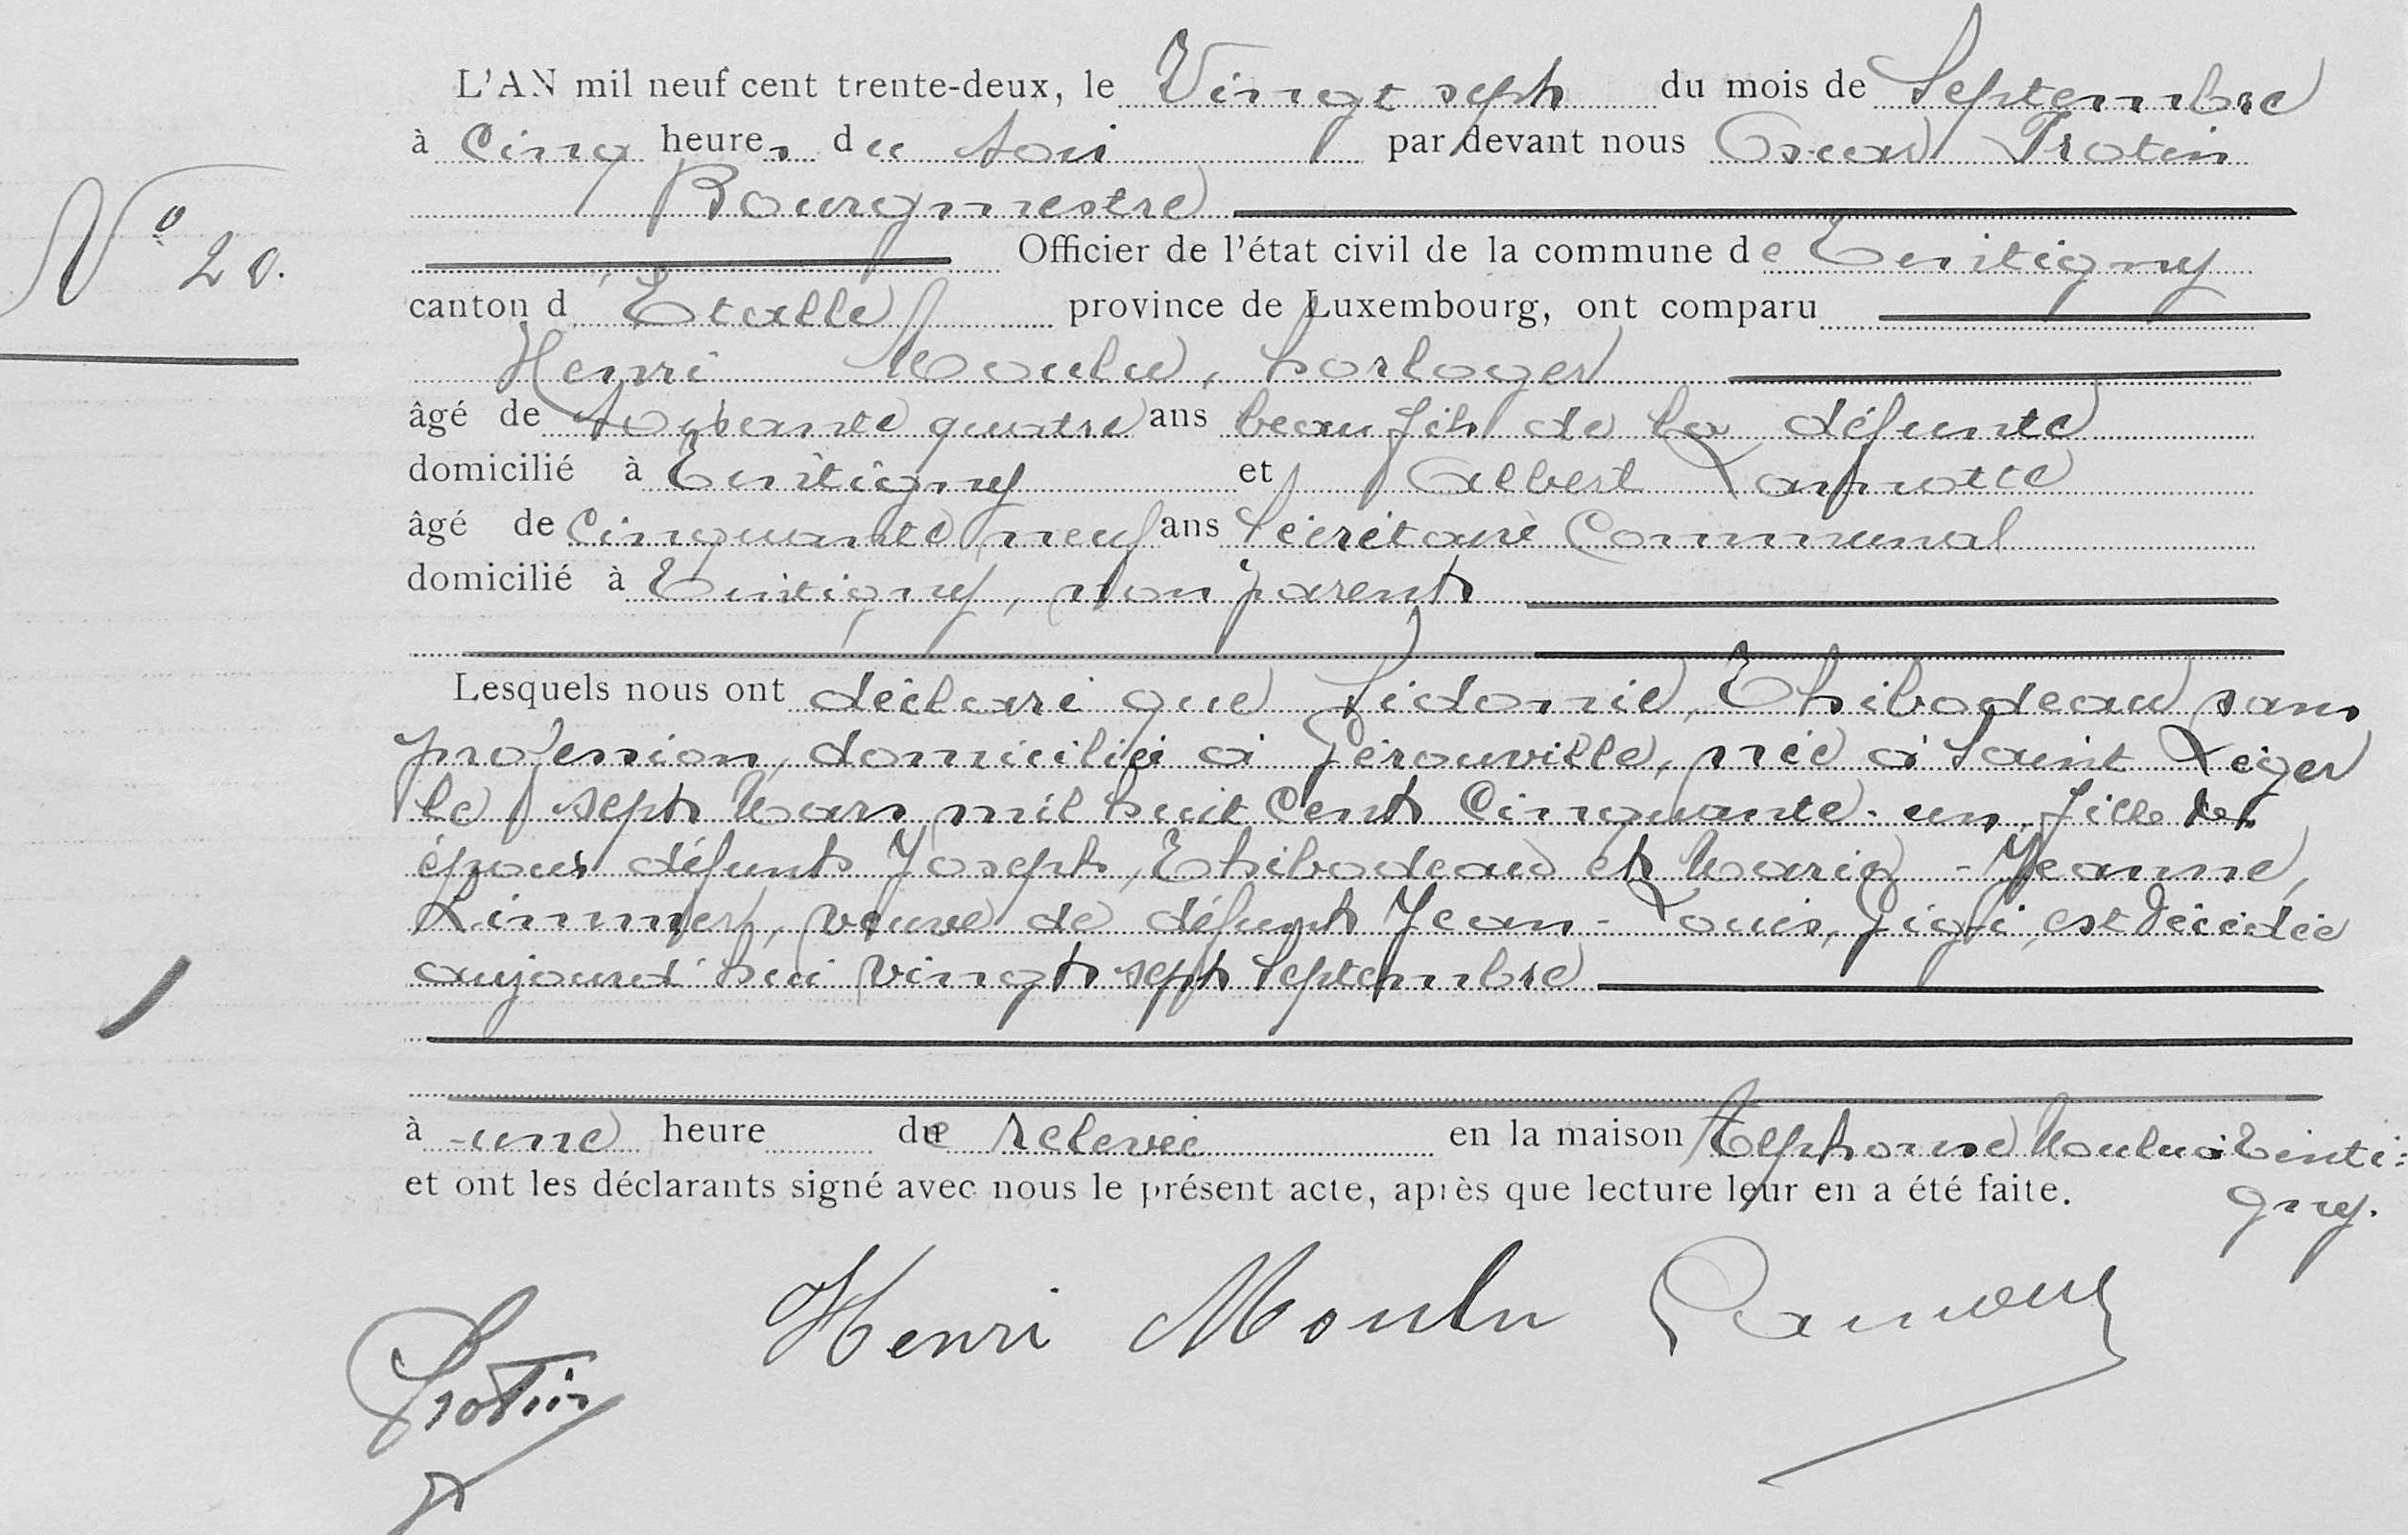 L'AN mil neuf cent trente-deux, le Vingt sept du mois de Septembre
à Cinq heures du soir par devant nous Oscar Trotin
Bourgmestre
N° 20.
Officier de l'état civil de la commune de Tintigny
canton d'Etalle province de Luxembourg, ont comparu
Henri Moulu, horloger
âgé de soixante quatre ans beau fils de la défunte
domicilié à Tintigny et Albert Lamotte
âgé de Cinquante neuf ans Sécrétaire Communal
domicilié à Tintigny, non parent
Lesquels nous ont déclaré que Sidonie, Thibodeau sans
profession, domiciliée à Gérouville, née à Saint Léger
le sept Mars mil huit Cent Cinquante-un fille des
époux défunts Joseph, Thibodeau et Marie-Jeanne,
veuve de défunt Jean-Louis, est décédée
aujourd'hui vingt sept Septembre
à une heure de relevée en la maison Alphonse Moulu à Tinti=
gny.
et ont les déclarants signé avec nous le présent acte, après que lecture leur en a été faite.
Trotin Henri Moulu